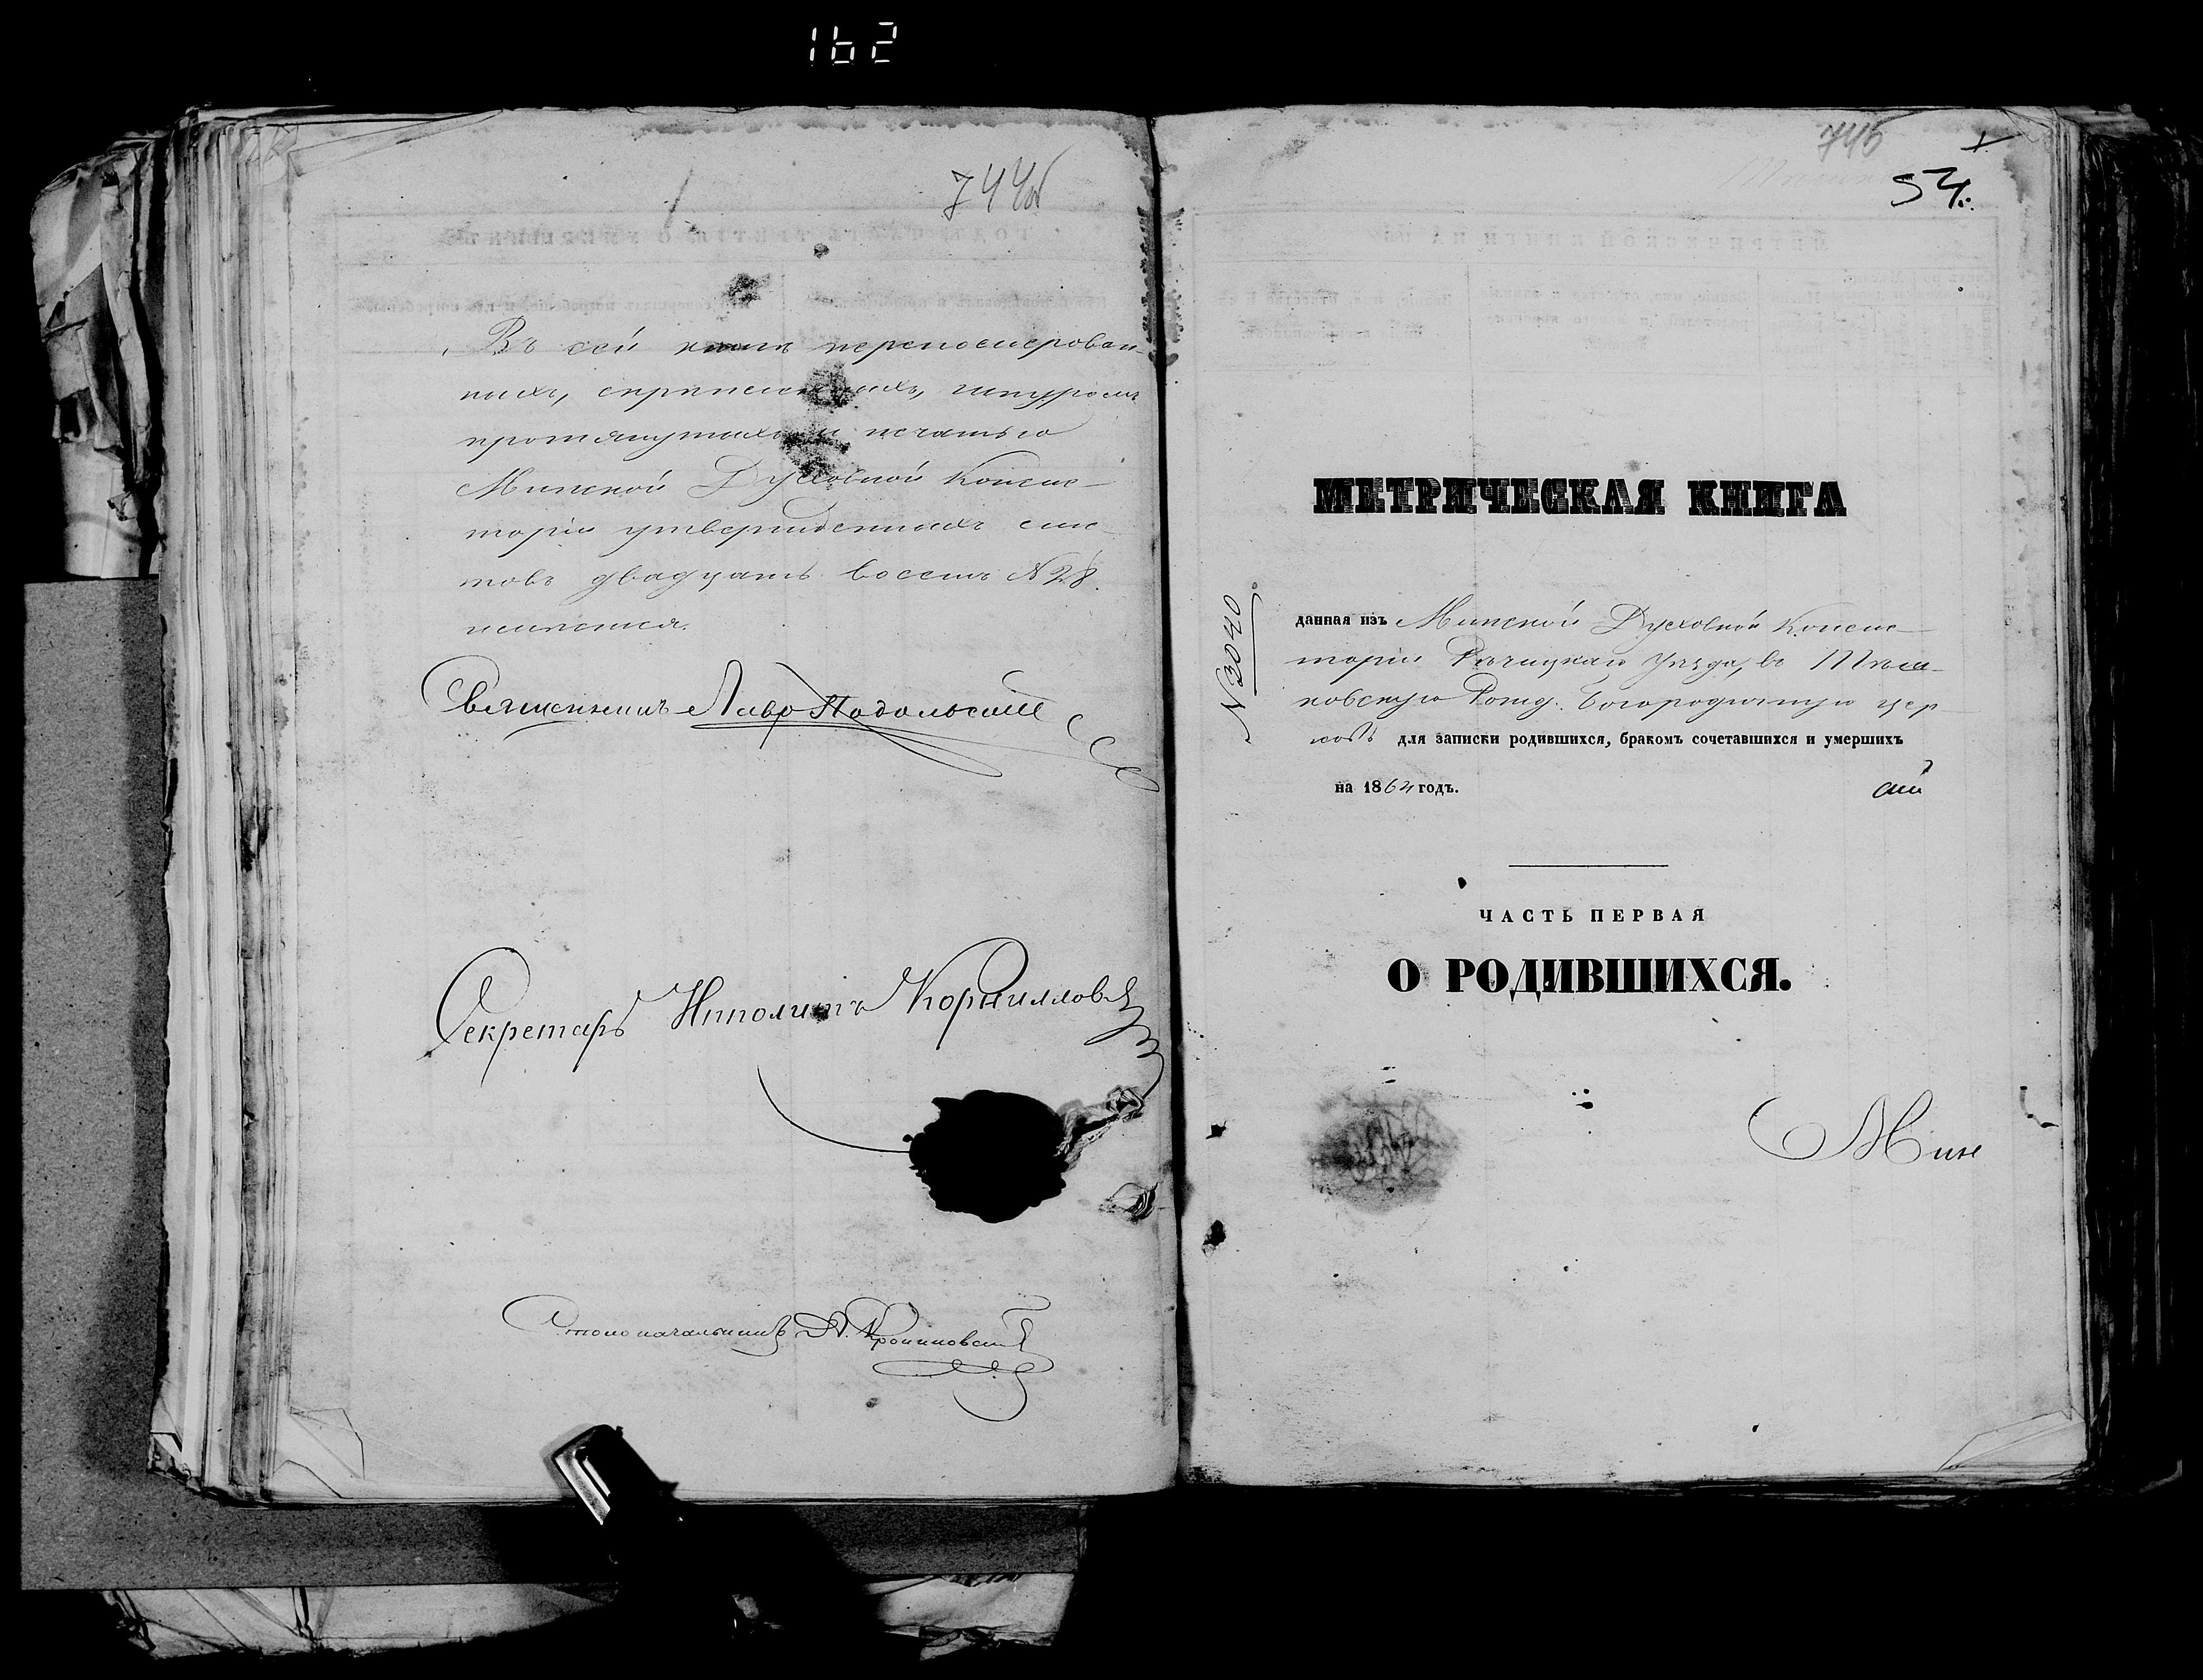 162
744об
Въ сей книгѣ перенумерован-
ныхъ, скрѣпленныхъ, шнуромъ
протянутыхъ и печатью
Минской Духовной Консис-
торіи утвержденныхъ лис-
товъ двадцать восемь № 28.
имѣется.
Священникъ Лавр Подольскій
Секретарь Ипполитъ Корнилловъ
Столоначальникъ
745
54.
МЕТРИЧЕСКАЯ КНИГА
№ 3040
данная изъ Минской Духовной Консис-
торіи Рѣчицкаго уѣзда, въ
Рожд. Богородичную цер-
ковь для записки родившихся, бракомъ сочетавшихся и умершихъ
на 1864 годъ.
ЧАСТЬ ПЕРВАЯ
О РОДИВШИХСЯ.
Мин